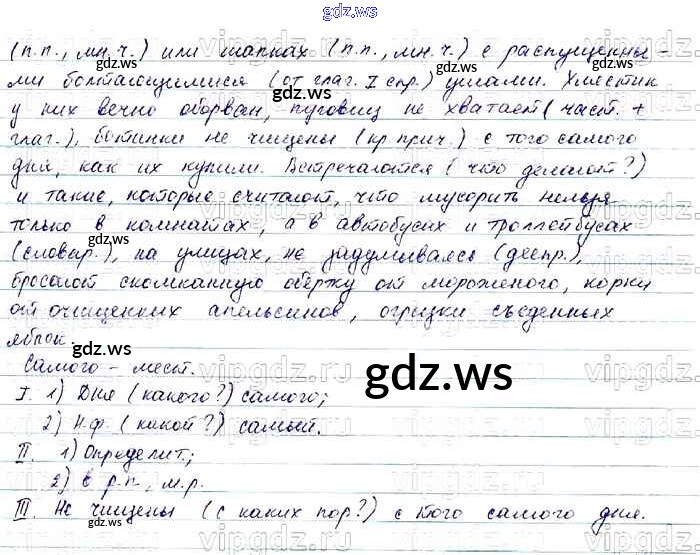 gdz.ws
(п.п., мн.ч.) или шапках (п.п., мн.ч.) с распущенны-
ми болтающимися (от глаг. I спр.) ушами. Хлястик
у них вечно оборван, пуговиц не хватает (част. +
глаг.), ботинки не чищены (кр. прич.) с того самого
дня, как их купили. Встречаются (что делают?)
и такие, которые считают, что мусорить нельзя
только в комнатах, а в автобусах и троллейбусах
(словар.), на улицах, не задумываясь (деепр.),
бросают скомканную обертку от мороженого, корки
от очищенных апельсинов, огрызки съеденных
яблок.
Самого - мест.
I. 1) Дня (какого?) самого;
2) Н.ф. (какой?) самый.
II. 1) Определит.;
2) в р.п., м.р.
III. Не чищены (с каких пор?) с того самого дня.
gdz.ws
gdz.ws
gdz.ws
gdz.ws
gdz.ws
gdz.ws
gdz.ws
gdz.ws